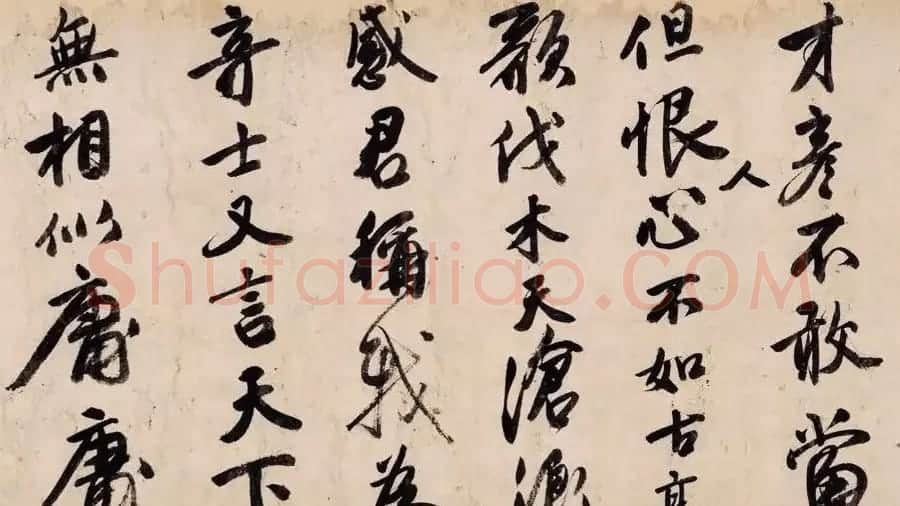 才彥不敢當
但恨人心不如古高
歌伐木天滄浪
感君稱我為
奇士又言天下
無相似庸庸
Shufaziliao.COM